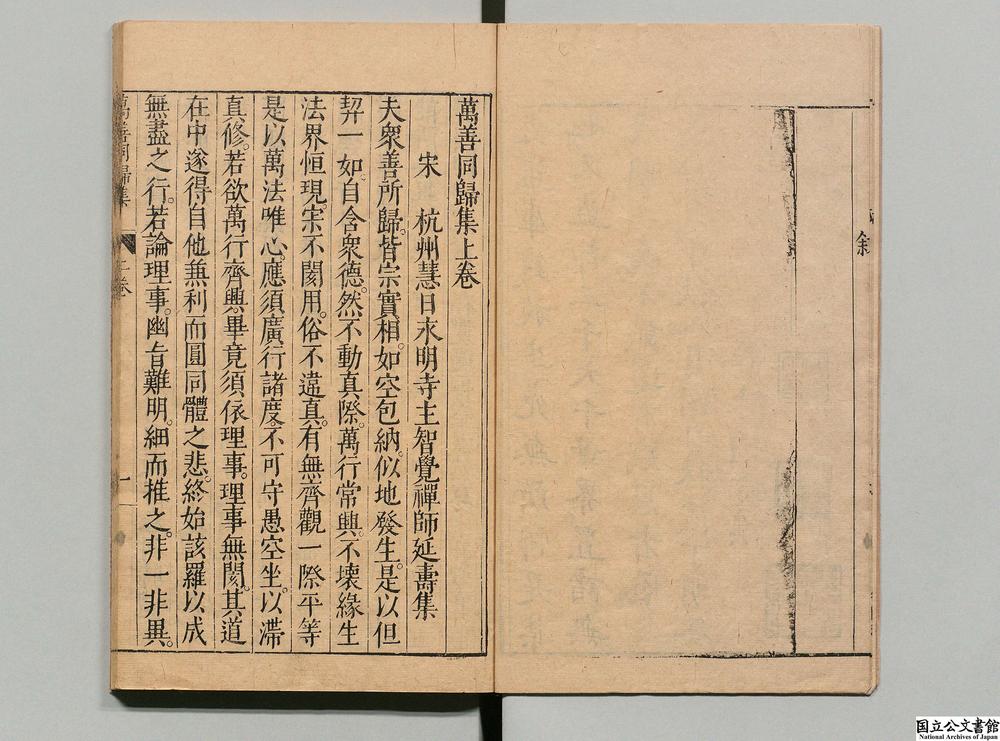 敘
萬善同歸集上卷
宋　杭州慧日永明寺主智覺禪師延壽集
夫衆善所歸。皆宗實相。如空包納。似地發生。是以但
契一如。自含衆德。然不動真際。萬行常興。不壞緣生
法界恒現。寂不閡用。俗不違真。有無齊觀。一際平等
是以萬法唯心。應須廣行諸度。不可守愚空坐。以滯
真修。若欲萬行齊興。畢竟須依理事。理事無閡。其道
在中。遂得自他兼利。而圓同體之悲。終始該羅。以成
無盡之行。若論理事。幽旨難明。細而推之。非一非異。
萬善同歸集　上卷　一
国立公文書館
National Archives of Japan